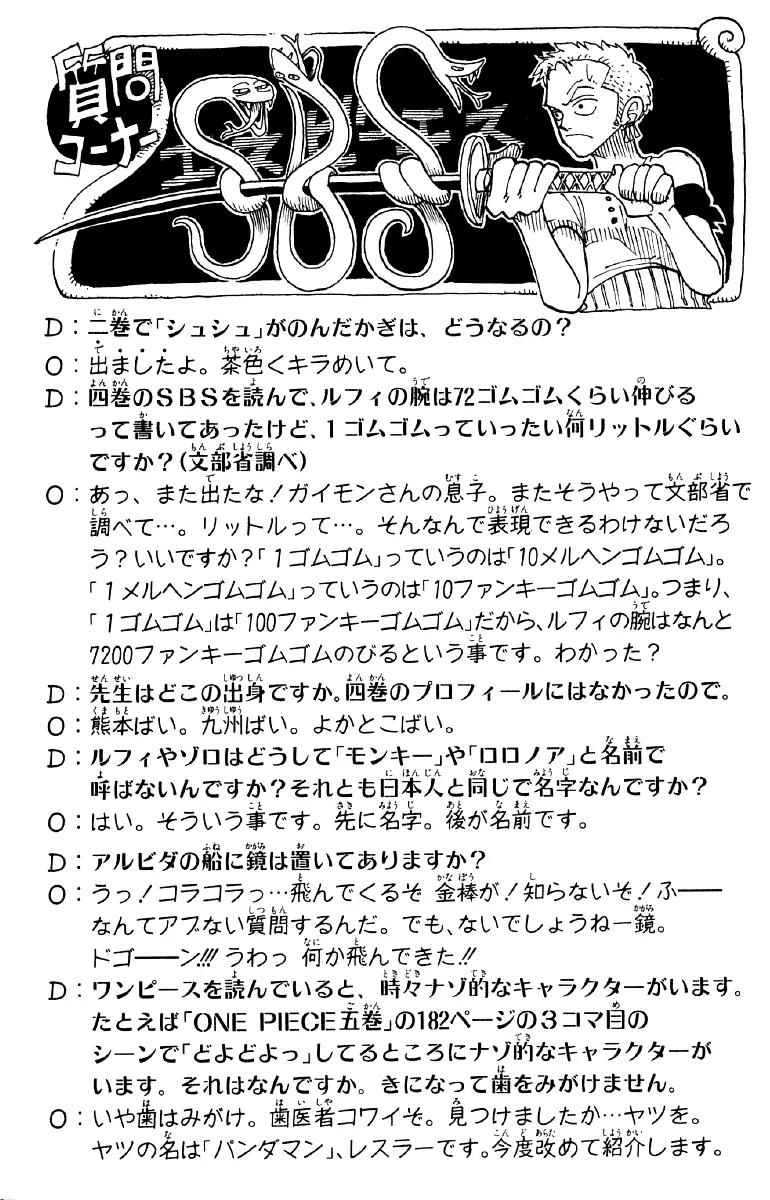 質問コーナー
SBS
エスビーエス
D：二巻で「シュシュ」がのんだかぎは、どうなるの？
O：出ましたよ。茶色くキラめいて。
D：四巻のSBSを読んで、ルフィの腕は72ゴムゴムくらい伸びる
って書いてあったけど、1ゴムゴムっていったい何リットルぐらい
ですか？(文部省調べ)
O：あっ、また出たな！ガイモンさんの息子。またそうやって文部省で
調べて…。リットルって…。そんなんで表現できるわけないだろ
う？いいですか？「1ゴムゴム」っていうのは「10メルヘンゴムゴム」。
「1メルヘンゴムゴム」っていうのは「10ファンキーゴムゴム」。つまり、
「1ゴムゴム」は「100ファンキーゴムゴム」だから、ルフィの腕はなんと
7200ファンキーゴムゴムのびるという事です。わかった？
D：先生はどこの出身ですか。四巻のプロフィールにはなかったので。
O：熊本ばい。九州ばい。よかとこばい。
D：ルフィやゾロはどうして「モンキー」や「ロロノア」と名前で
呼ばないんですか？それとも日本人と同じで名字なんですか？
O：はい。そういう事です。先に名字。後が名前です。
D：アルビダの船に鏡は置いてありますか？
O：うっ！コラコラっ…飛んでくるぞ 金棒が！知らないぞ！ふ──
なんてアブない質問するんだ。でも、ないでしょうねー鏡。
ドゴ──ン!!! うわっ 何か飛んできた!!
D：ワンピースを読んでいると、時々ナゾ的なキャラクターがいます。
たとえば「ONE PIECE五巻」の182ページの3コマ目の
シーンで「どよどよっ」してるところにナゾ的なキャラクターが
います。それはなんですか。きになって歯をみがけません。
O：いや歯はみがけ。歯医者コワイぞ。見つけましたか…ヤツを。
ヤツの名は「パンダマン」、レスラーです。今度改めて紹介します。